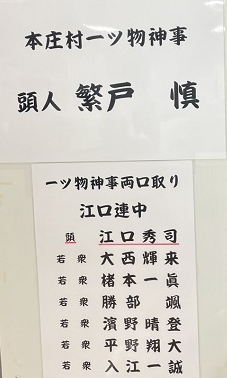 本庄村一ツ物神事
頭人 繁戸 慎
一ツ物神事両口取り
江口連中
頭 江口秀司
若衆 大西輝来
若衆 楮本一眞
若衆 勝部 颯
若衆 濱野晴登
若衆 平野翔大
若衆 入江一誠